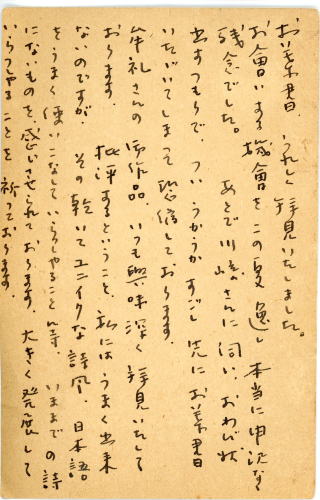 お葉書、うれしく拝見いたしました。
お會いする機會をこの夏逸し 本当に申訳なく
残念でした。 あとで川崎さんに伺い、おわび状
出すつもりで ついうかうかすごし 先にお葉書
いただいてしまって恐縮しております。
牟礼さんの 御作品、いつも興味深く拝見いたして
おります。 批評するということ、私にはうまく出来
ないのですが その乾いてユニイクな詩風、日本語
をうまく使いこなしていらっしゃること等 いままでの詩
にないものを感じさせられております。 大きく発展して
いらっしゃることを祈っております。